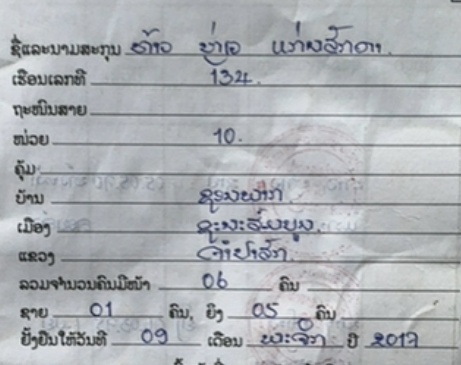 ຊື່ແລະນາມສະກຸນ ທ້າວ
ເຮືອນເລກທີ 134.
ຖະໜົນສາຍ
ໜ່ວຍ 10.
ຄຸ້ມ
ບ້ານ
ເມືອງ ຊະນະສົມບູນ.
ແຂວງ ຈຳປາສັກ.
ລວມຈຳນວນຄົນມີໜ້າ 06 ຄົນ
ຊາຍ 01 ຄົນ, ຍິງ 05 ຄົນ
ຢັ້ງຢືນໃຫ້ວັນທີ 09 ເດືອນ ພະຈິກ ປີ 2017